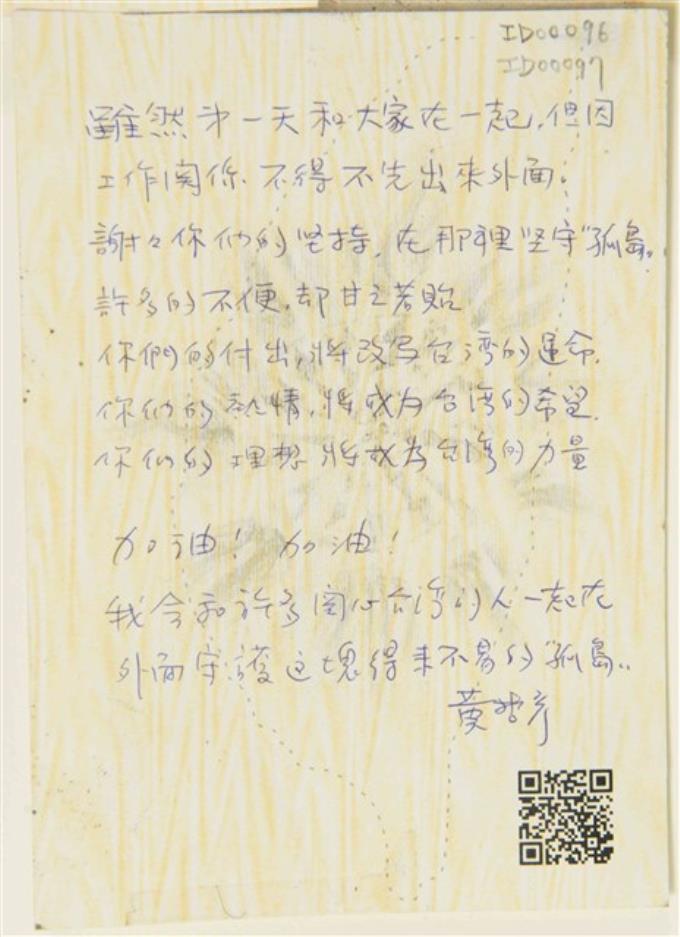 ID00096
ID00097
雖然第一天和大家在一起,但因
工作関係、不得不先出來外面。
謝々你們的坚持,在那裡坚守"孤島"。
許多的不便,却甘之若貽
你們的付出,將改写台湾的運命,
你们的熱情,將成为台湾的希望,
你们的理想將成為台湾的力量
加油!加油!
我会和許多関心台湾的人一起在
外面守護这塊得来不易的"孤島"。
黄